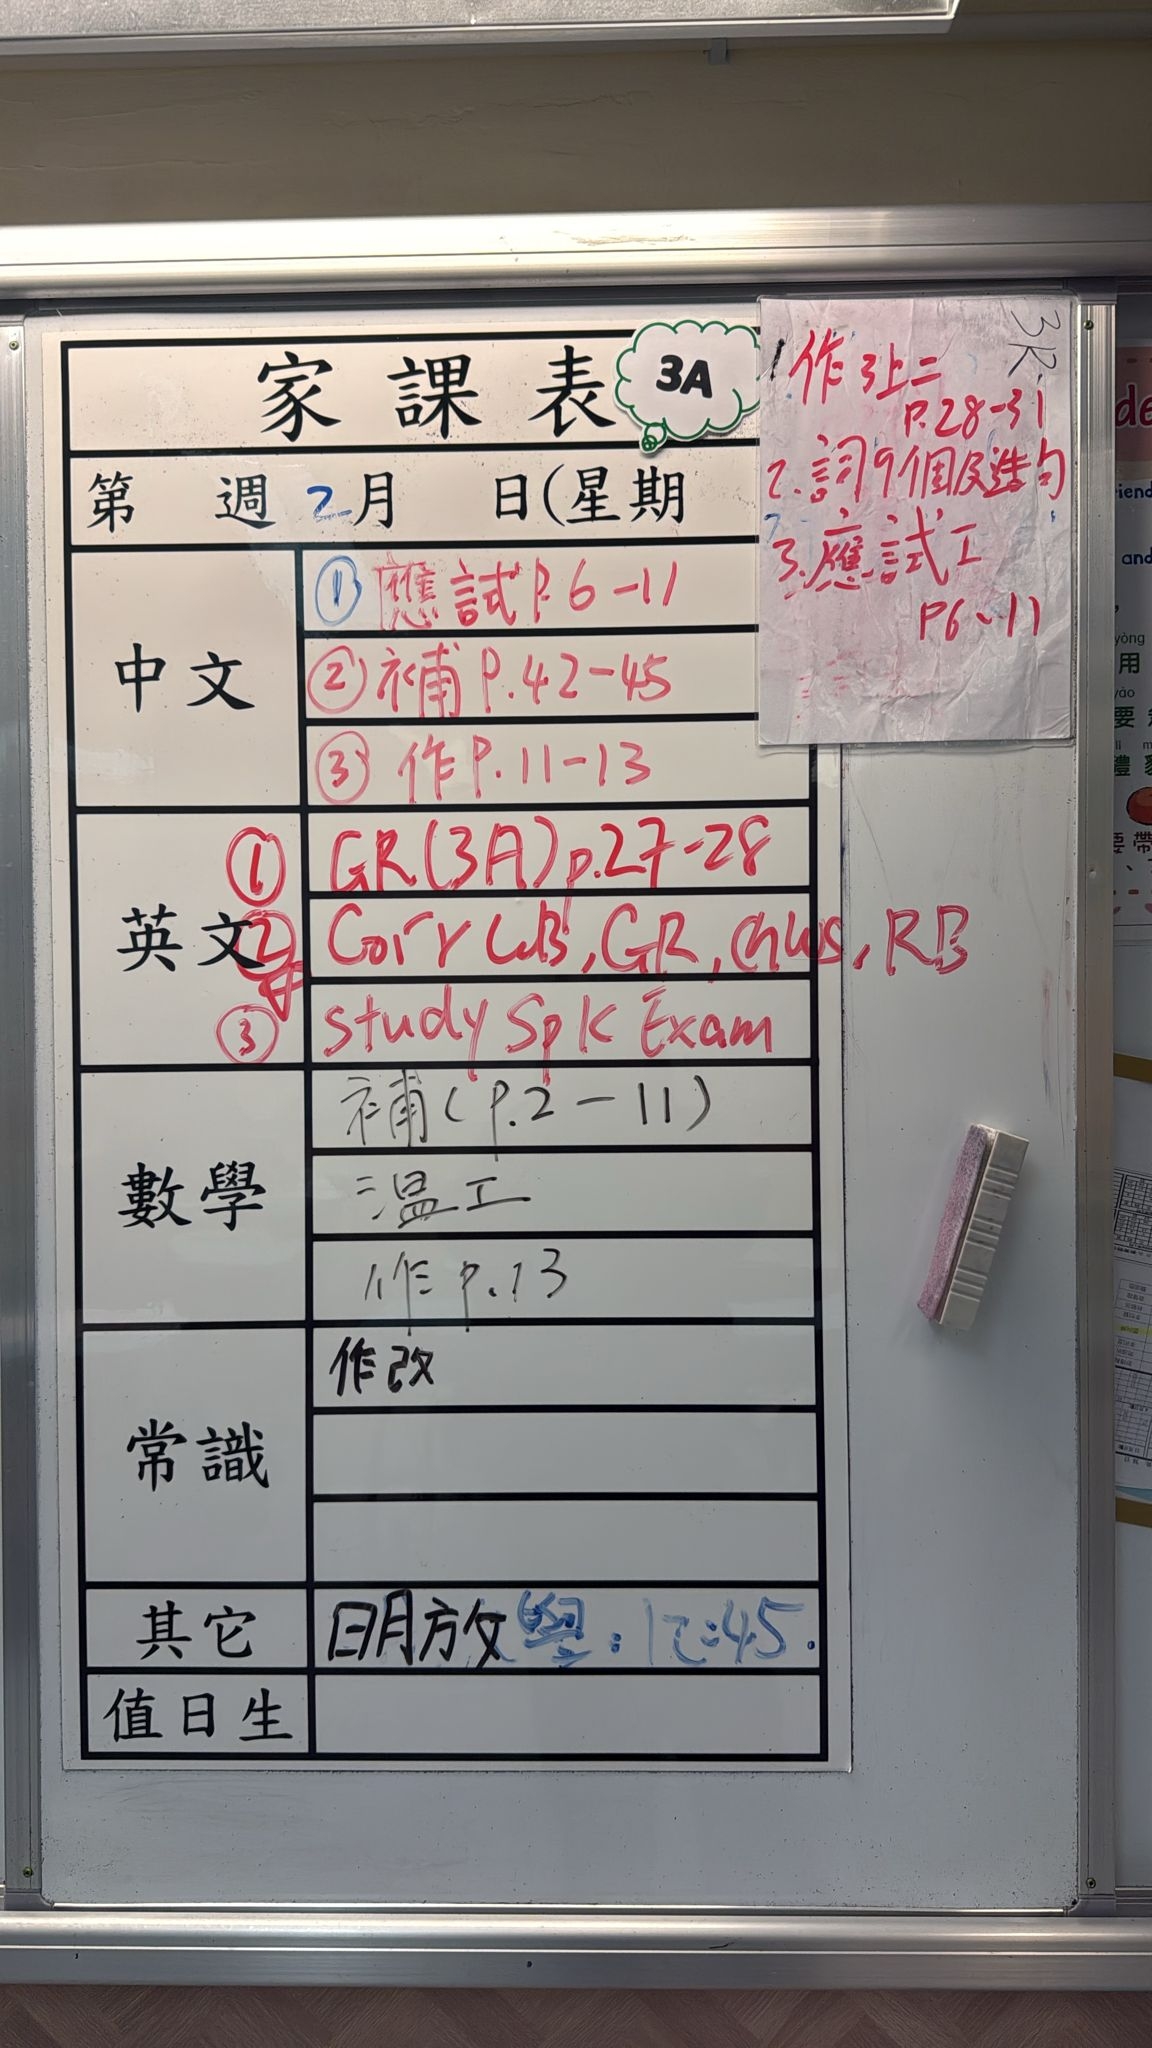 家課表
3A
第 週 2月 日(星期
中文
① 應試 P.6-11
② 補 P.42-45
③ 作 P.11-13
英文
① GR(3A) p.27-28
② Corr WB, GR, GWS, RB
③ study Spk Exam
數學
補(P.2-11)
溫工
作 P.13
常識
作改
其它
明放學:12:45.
值日生
3K
1.作 3上二
P.28-31
2.詞9個及造句
3.應試工
P6、11
用
要
禮
要帶
and
yòng
yào